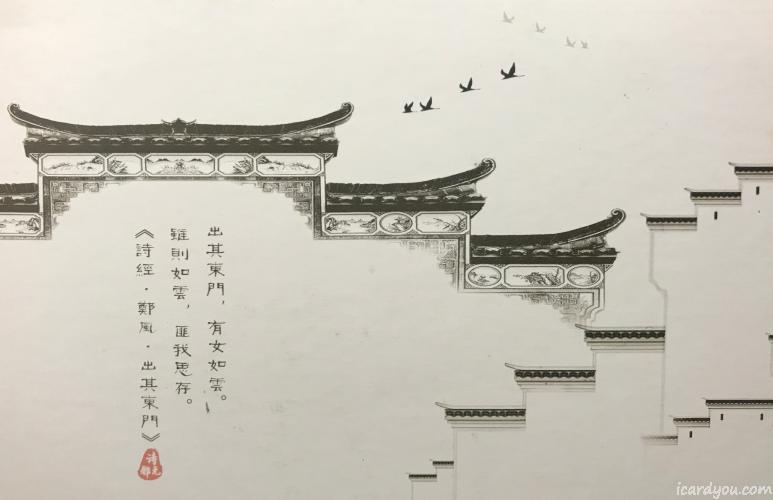 出其東門，有女如雲。
雖則如雲，匪我思存。
《詩經·鄭風·出其東門》
icardyou.com